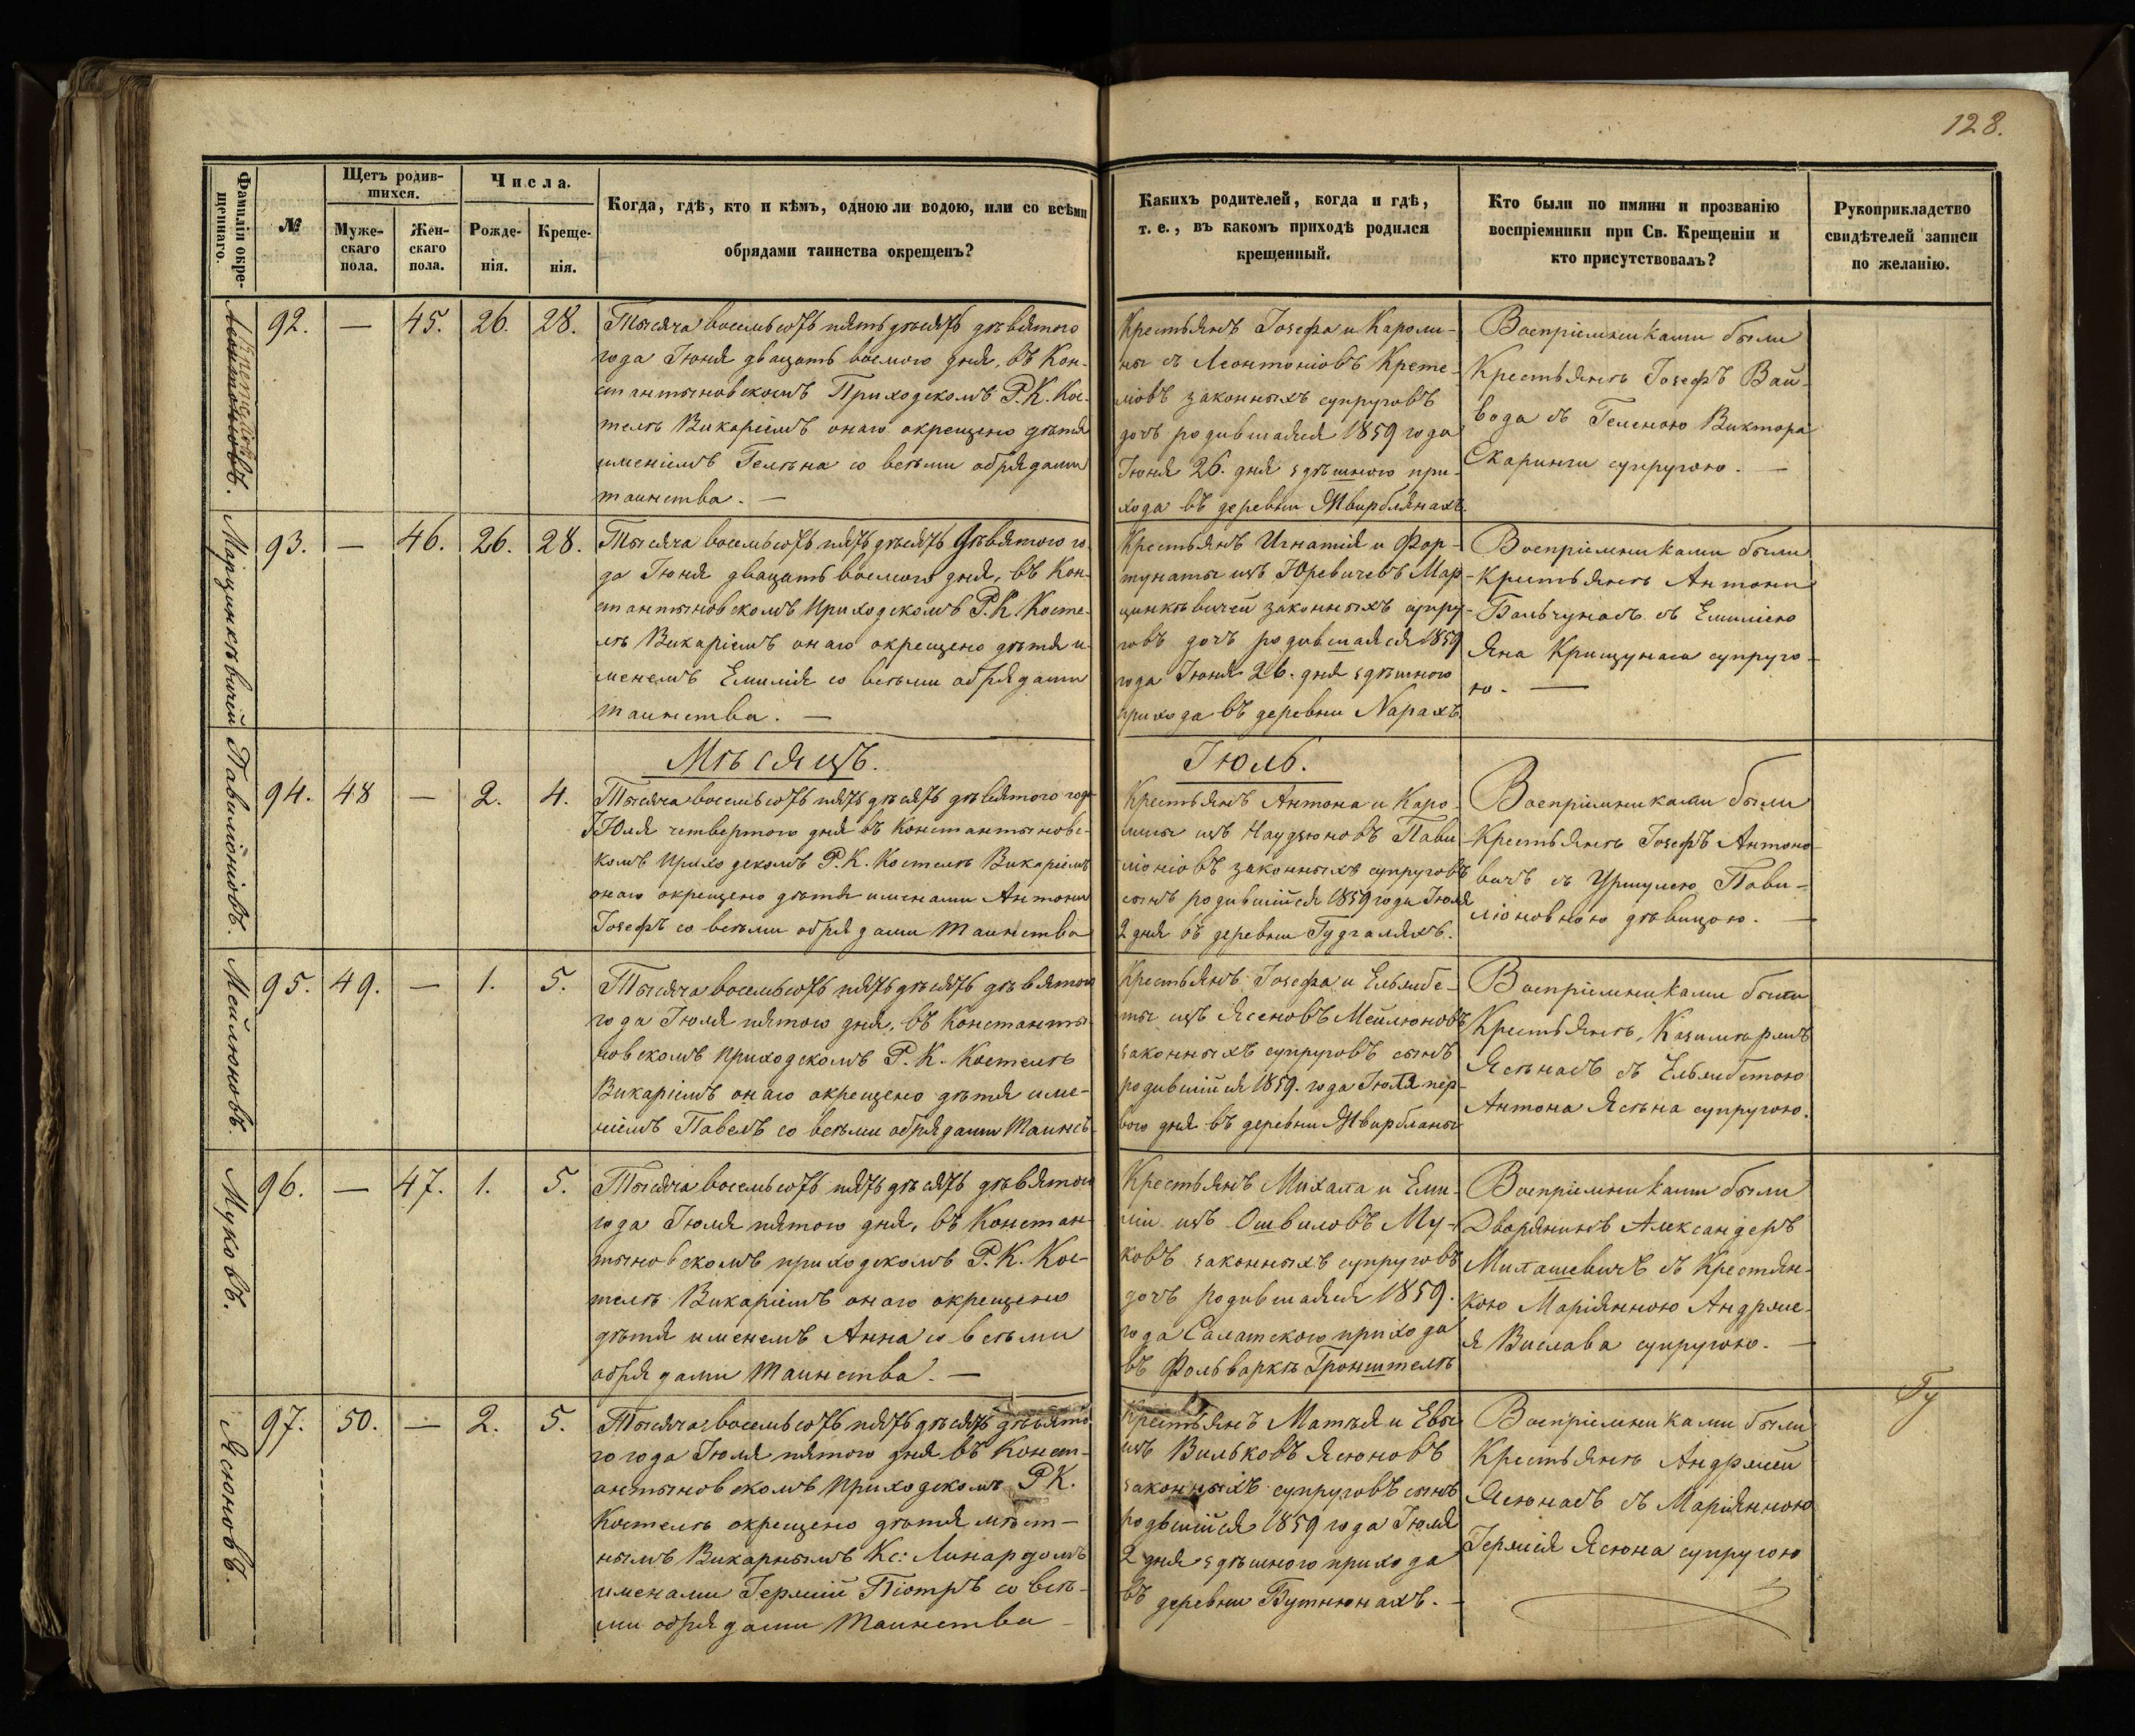 128.
Фамилія окрещеннаго.
№
Щетъ родившихся.
Мужескаго пола.
Женскаго пола.
Числа.
Рожденія.
Крещенія.
Когда, гдѣ, кто и кѣмъ, одною ли водою, или со всѣми
обрядами таинства окрещенъ?
Какихъ родителей, когда и гдѣ,
т. е., въ какомъ приходѣ родился
крещенный.
Кто были по имяни и прозванію
воспріемники при Св. Крещеніи и
кто присутствовалъ?
Рукоприкладство
свидѣтелей записи
по желанію.
92. — 45. 26. 28.
Тысяча восемьсотъ пятьдѣсятъ дѣвятого
года Іюня двацать восмого дня, въ Кон-
стантыновскомъ Приходскомъ Р. К. Кос-
телѣ Викаріемъ онаго окрещено дѣтя
именіемъ Гелѣна со всѣми обрядами
таинства. —
Крестьянъ Іозефа и Кароли-
ны съ Леонтоніовъ Крете-
ліовъ законныхъ супруговъ
дочъ родившаяся 1859 года
Іюня 26. дня здѣшного при-
хода въ деревни Жвирблянахъ.
Воспріемниками были
Крестьянѣ Іозефъ Вай-
вода съ Геленою Виктора
Скаринги супругою. —
Марцинкѣвичей
93. — 46. 26. 28.
Тысяча восемьсотъ пятьдѣсятъ дѣвятого го-
да Іюня двацать восмого дня, въ Кон-
стантыновскомъ Приходскомъ Р. К. Косте-
лѣ Викаріемъ онаго окрещено дѣтя и-
менемъ Емилія со всѣми обрядами
таинства. —
Крестьянъ Игнатія и Фор-
тунаты изъ Юревичевъ Мар-
цинкѣвичей законныхъ супру-
говъ дочъ родившаяся 1859
года Іюня 26. дня здѣшного
прихода въ деревни Нарахъ.
Воспріемниками были
Крестьянѣ Антони
Бальчунасъ съ Емиліею
Яна Крищунаса супруго-
ю. —
Мѣсяцъ.
Іюль.
Павиліоніовъ.
94. 48 — 2. 4.
Тысяча восемьсотъ пятьдѣсятъ дѣвятого года
Іюля четвертого дня въ Константыновс-
комъ Приходскомъ Р. К. Костелѣ Викаріемъ
онаго окрещено дѣтя именами Антони
Іозефъ со всѣми обрядами таинства
Крестьянъ Антона и Каро-
лины изъ Наудзюновъ Пави-
ліоніовъ законныхъ супруговъ
сынъ родившійся 1859 года Іюля
2 дня въ деревни Гудгаляхъ.
Воспріемниками были
Крестьянѣ Іозефъ Антоно-
вичъ съ Уршулею Пави-
ліоновною дѣвицою. —
Мейлюновъ.
95. 49. — 1. 5.
Тысяча восемьсотъ пятьдѣсятъ дѣвятого
года Іюля пятого дня, въ Константы-
новскомъ Приходскомъ Р. К. Костелѣ
Викаріемъ онаго окрещено дѣтя име-
ніемъ Павелъ со всѣми обрядами таинсъ-
Крестьянъ Іозефа и Ельжбе-
ты изъ Ясеновъ Мейлюновъ
законныхъ супруговъ сынъ
родившійся 1859. года Іюля пер-
вого дня въ деревни Жвирбланы
Воспріемниками были
Крестьянѣ, Казимѣржъ
Ясѣнасъ съ Ельжбетою
Антона Ясѣна супругою.
Муковъ.
96. — 47. 1. 5.
Тысяча восемьсотъ пятьдѣсятъ дѣвятого
года Іюля пятого дня, въ Констан-
тыновскомъ приходскомъ Р. К. Кос-
телѣ Викаріемъ онаго окрещено
дѣтя именемъ Анна со всѣми
обрядами таинства. —
Крестьянъ Михала и Еми-
ліи изъ Ошвиловъ Му-
ковъ законныхъ супруговъ
дочъ родившаяся 1859.
года Салатского прихода
въ Фольваркѣ Гронштелѣ
Воспріемниками были
Дворянинъ Александеръ
Милашевичъ съ Крестян-
кою Маріянною Андрже-
я Вислава супругою. —
Ясюновъ.
97. 50. — 2. 5.
Тысяча восемьсотъ пятьдѣсятъ дѣвято-
го года Іюля пятого дня въ Конст-
антыновскомъ Приходскомъ Р К.
Костелѣ окрещено дѣтя мѣст-
нымъ Викарнымъ Кс: Линардомъ
именами Іержій Піотръ со всѣ-
ми обрядами таинства —
Крестьянъ Матѣя и Евы
изъ Вильковъ Ясюновъ
законныхъ супруговъ сынъ
родвшійся 1859 года Іюля
2 дня здѣшного прихода
въ деревни Бутнюнахъ. —
Воспріемниками были
Крестьянѣ Андржей
Ясюнасъ съ Маріянною
Іержія Ясюна супругою